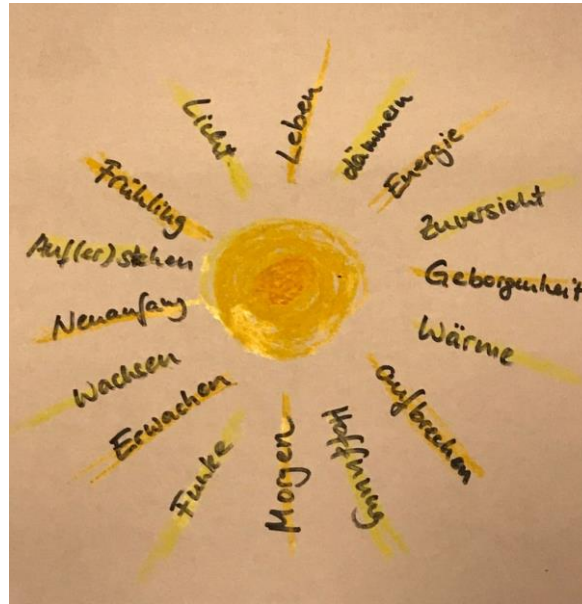 Licht
Leben
dämmern
Energie
Zuversicht
Geborgenheit
Wärme
aufbrechen
Hoffnung
Morgen
Funke
Erwachen
Wachsen
Neuanfang
Auf(er)stehen
Frühling